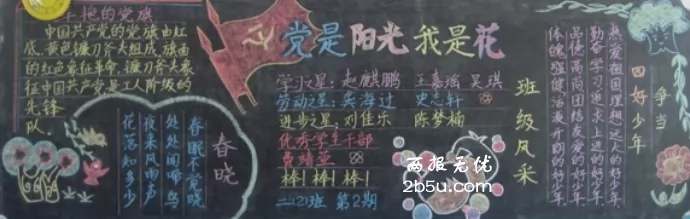 党是阳光我是花
艳的党旗
中国共产党的党旗由红
底、黄色镰刀斧头组成,旗面
的红色象征革命,镰刀斧头象
征中国共产党是工人阶级的
先锋
队.
春晓
春眠不觉晓
处处闻啼鸟
夜来风雨声
花落知多少
学习星:赵麒鹏 王嘉瑶 吴琪
劳动之星:龚海过 史志轩
进步之星:刘佳乐 陈梦楠
优秀学生干部
棒!棒!棒!
二(2)班 第2期
班级风采
争当
四好少年
热爱祖国理想远大的好少年
勤奋学习追求上进的好少年
品德高尚团结友爱的好少年
体魄强健活泼开朗的好少年
两报无忧
2b5u.com